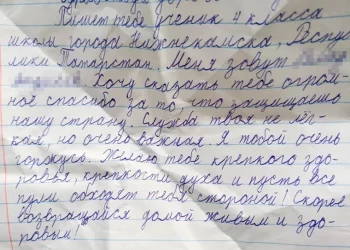 Пишет тебе ученик 4 класса
школы города Нижнекамска, Респуб
лики Татарстан. Меня зовут
Хочу сказать тебе огром-
ное спасибо за то, что защищаешь
нашу страну. Служба твоя не лёг-
кая но очень важная. Я тобой очень
горжусь. Желаю тебе крепкого здо-
ровья, крепкости духа и пусть все
пули обходят тебя стороной! Скорее
возвращайся домой живым и здо-
ровым!